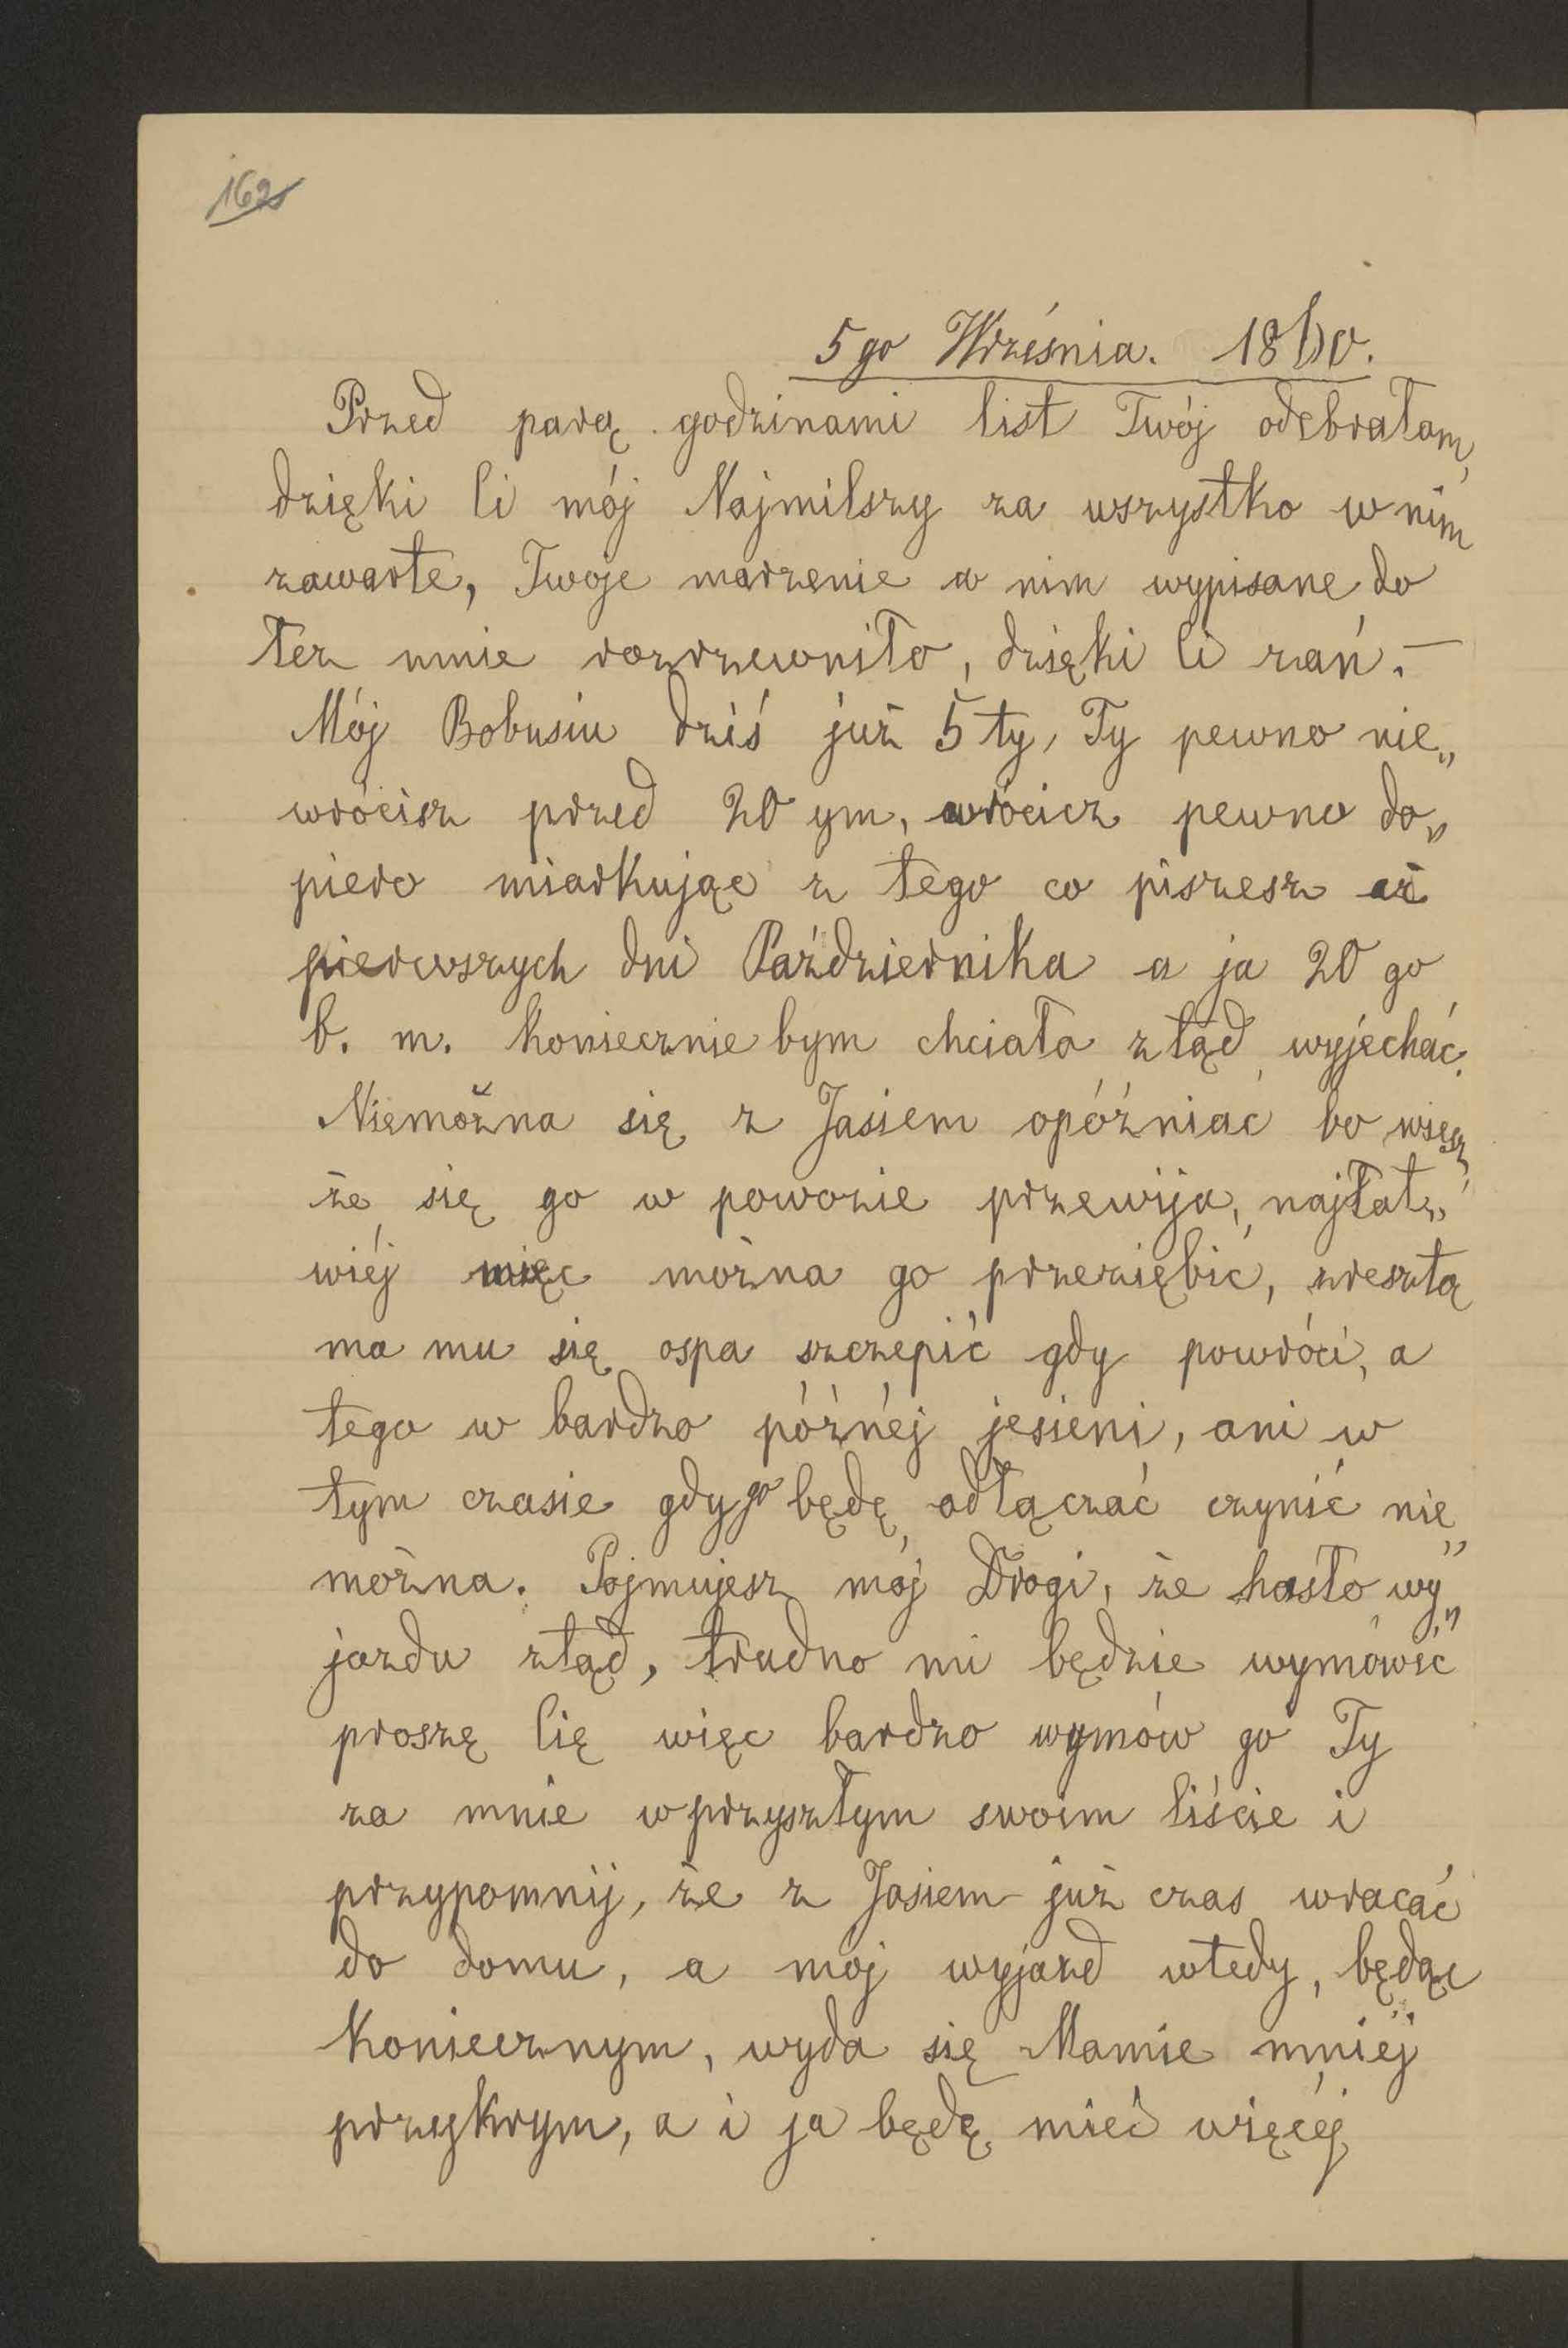 162
5go Września. 1860.
Przed parą godzinami list Twój odebrałam,
dzięki Ci mój Najmilszy za wszystko w nim
zawarte, Twoje marzenie w nim wypisane do
łez mnie rozrzewniło, dzięki Ci zań. —
Mój Bobusiu dziś już 5ty, Ty pewno nie„
wrócisz przed 20ym, wrócisz pewno do„
piero miarkując z tego co piszesz aż
pierwszych dni Października a ja 20go
b. m. koniecznie bym chciała ztąd wyjechać.
Niemożna się z Jasiem opóźniać bo wiesz,
że się go w powozie przewija, najłat„
wiéj więc można go przeziębić, zresztą
ma mu się ospa szczepić gdy powróci, a
tego w bardzo póżnéj jesieni, ani w
tym czasie gdy go będę odłączać czynić nie„
można. Pojmujesz mój Drogi, że hasło wy„
jazdu ztąd, trudno mi będzie wymówić
proszę Cię więc bardzo wymów go Ty
za mnie w przyszłym swoim liście i
przypomnij, że z Jasiem już czas wracać
do domu, a mój wyjazd wtedy, będąc
koniecznym, wyda się Mamie mniéj
przykrym, a i ja będę mieć więcéj